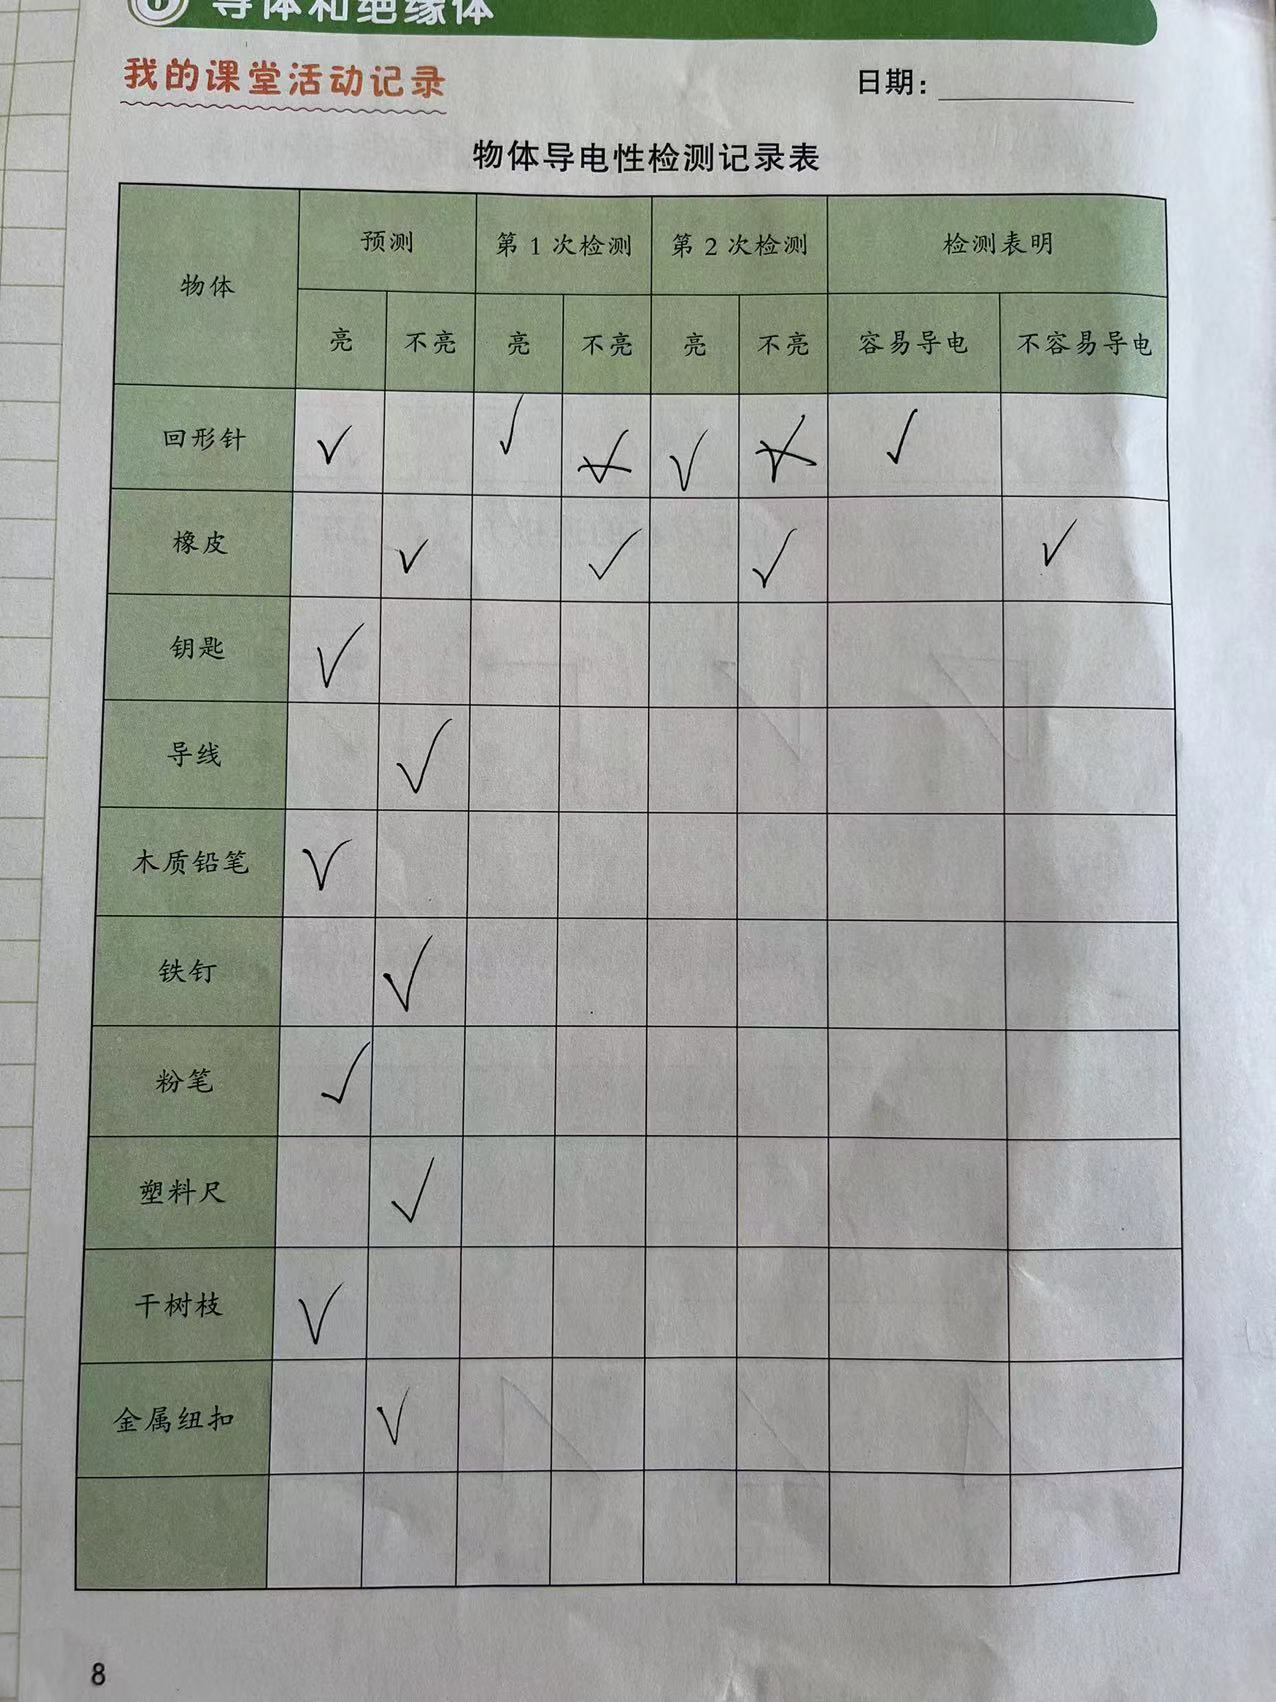 导体和绝缘体
我的课堂活动记录 日期：
物体导电性检测记录表
物体 预测 第1次检测 第2次检测 检测表明
亮 不亮 亮 不亮 亮 不亮 容易导电 不容易导电
回形针 ✓ ✓ ✓ ✓
橡皮 ✓ ✓ ✓ ✓
钥匙 ✓
导线 ✓
木质铅笔 ✓
铁钉 ✓
粉笔 ✓
塑料尺 ✓
干树枝 ✓
金属纽扣 ✓
8